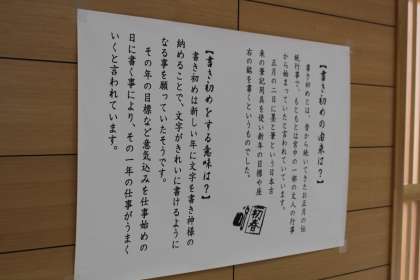 【書き初めの由来は？】
書き初めとは、昔から続いてきたお正月の伝
統行事で、もともとは宮中の一部の文人の行事
から始まっていたと言われていています。
正月の二日に墨と筆という日本古
来の筆記用具を使い新年の目標や座
右の銘を書くというものでした。
初春
【書き初めをする意味は？】
書き初めは新しい年に文字を書き神様の
納めることで、文字がきれいに書けるように
なる事を願っていたそうです。
その年の目標など意気込みを仕事始めの
日に書く事により、その一年の仕事がうまく
いくと言われています。